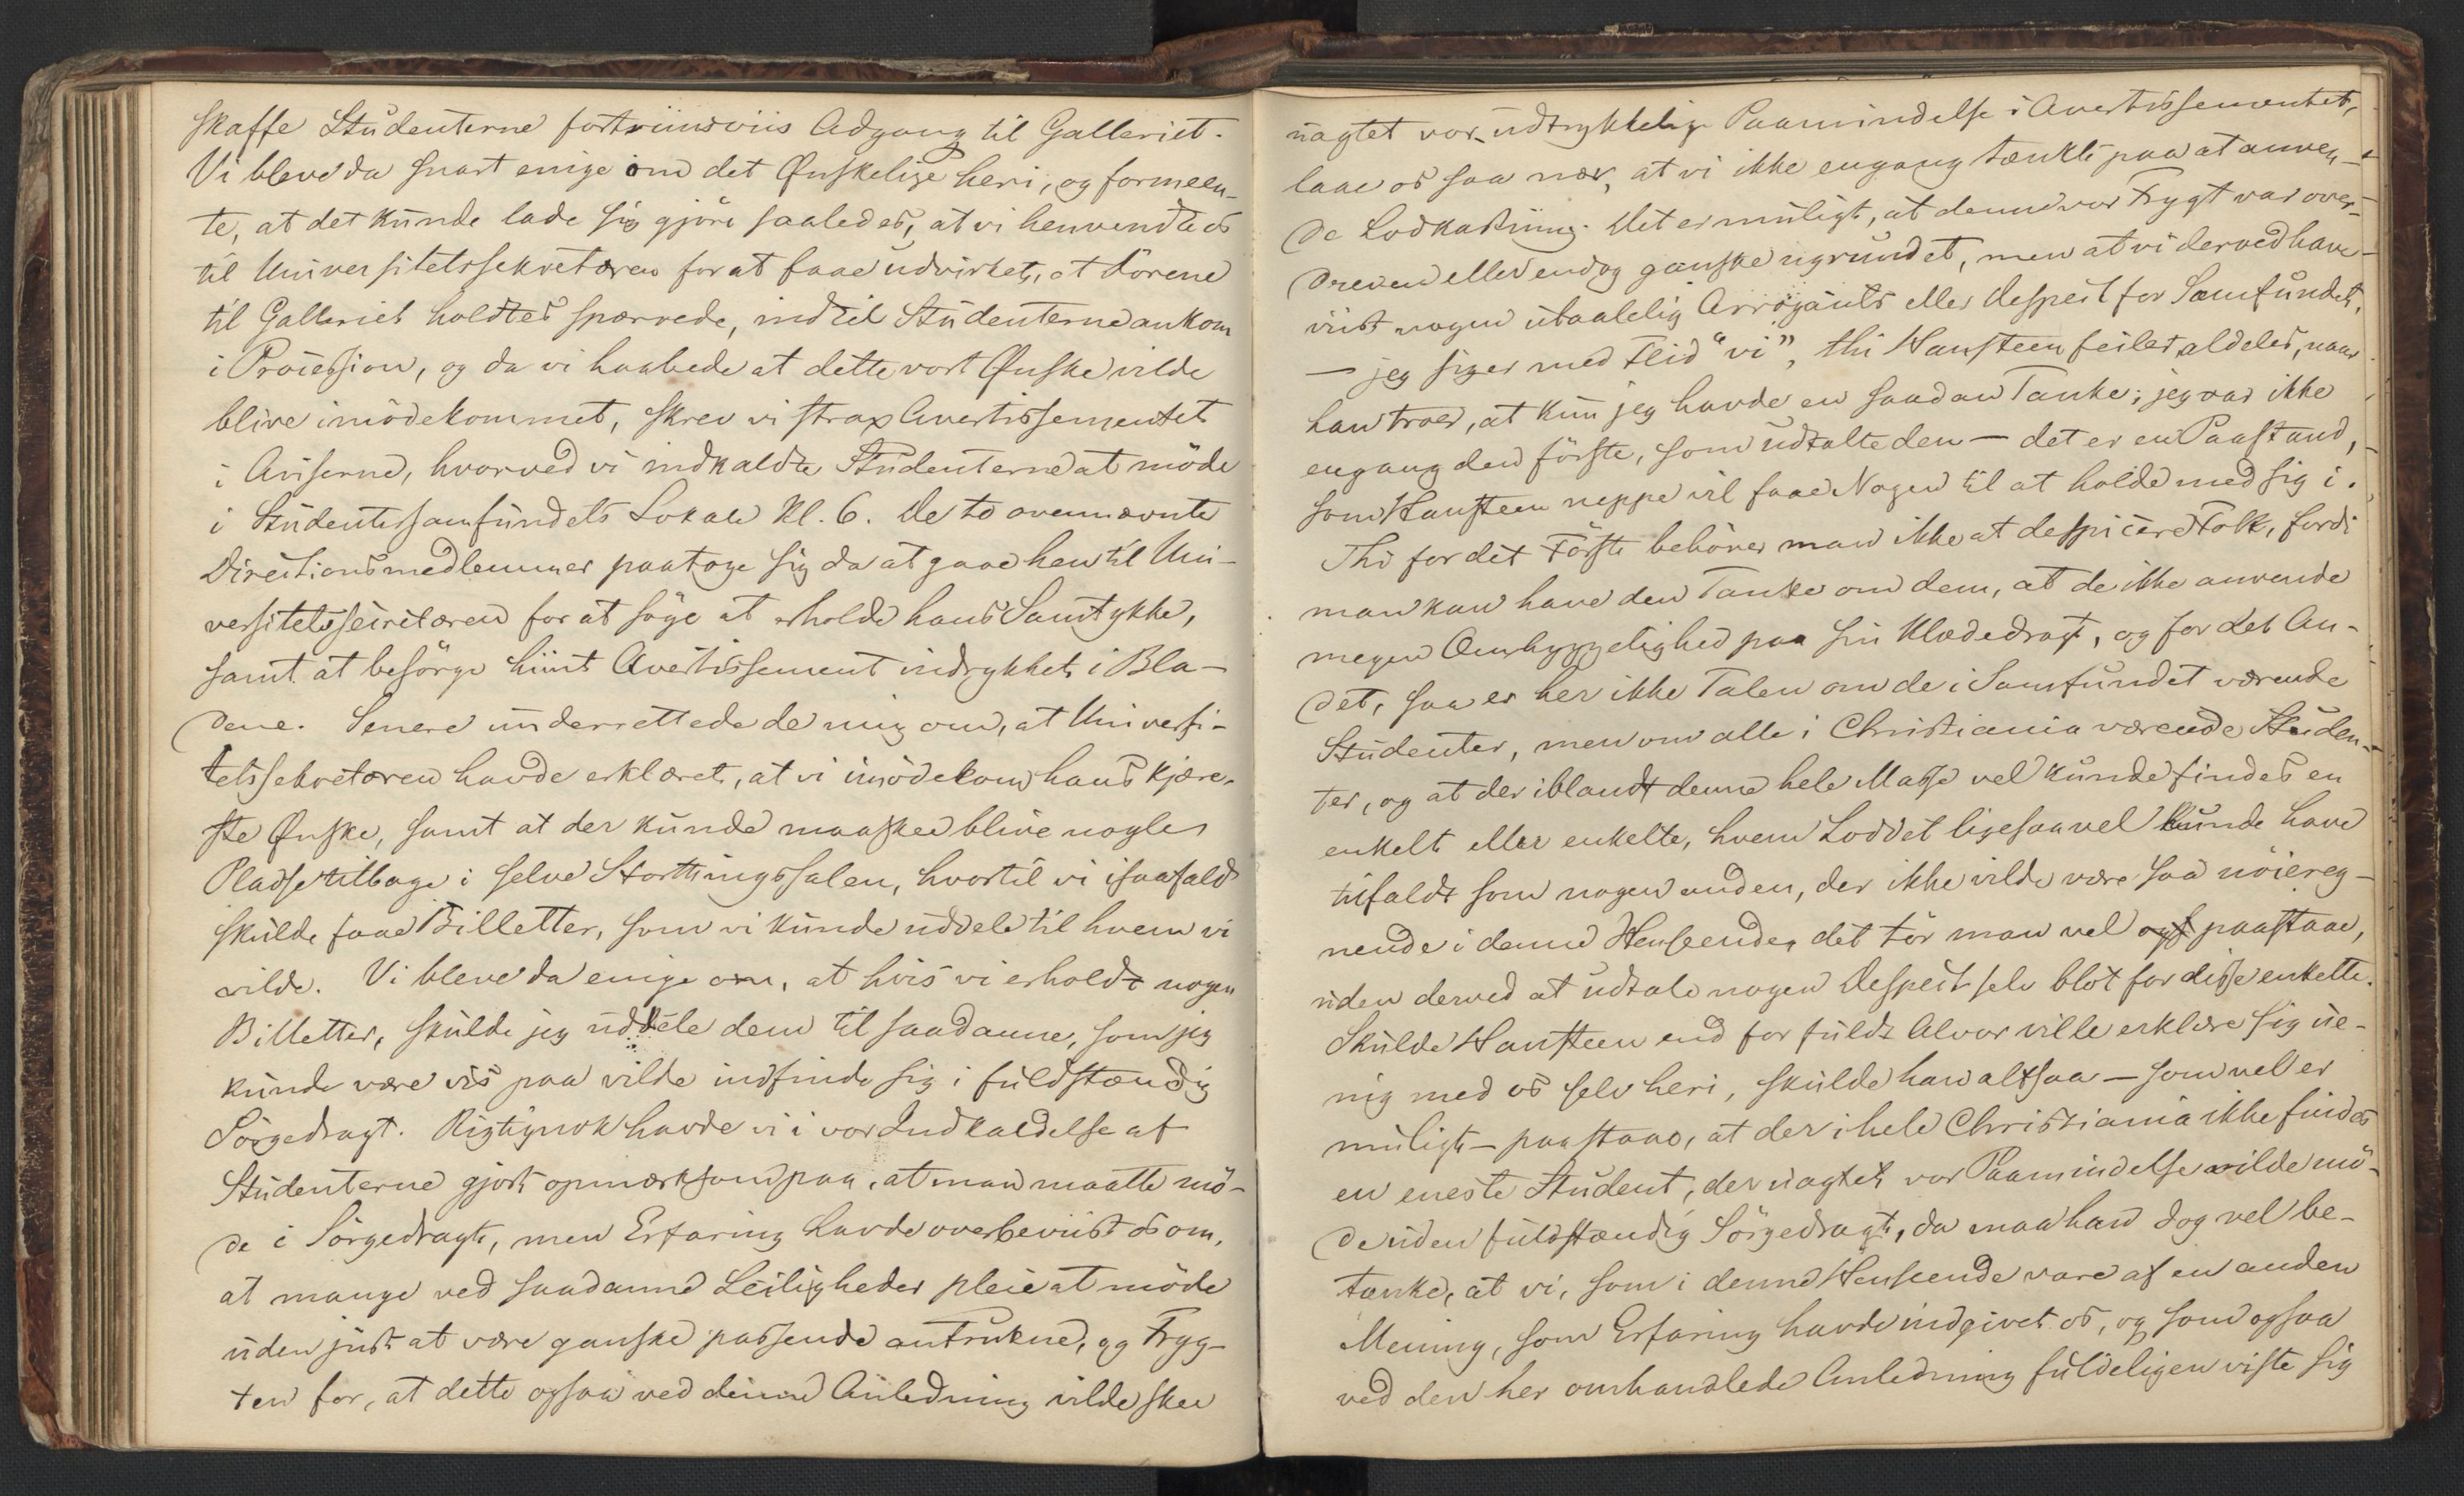 skaffe Studenterne fortriinsviis Adgang til Galleriet.
Vi bleve da snart enige om det Ønskelige heri, og formeen-
te, at det kunde lade sig gjöre saaledes, at vi henvendte os
til Universitetssekretæren for at faae udvirket, at Dörene
til Galleriet holdtes spærrede, indtil Studenterne ankom
i Procession, og da vi haabede at dette vort Ønske vilde
blive imödekommet, skrev vi strax Avertissementet
i Aviserne, hvorved vi indkaldte Studenterne at möde
i Studentersamfundets Lokale Kl. 6. De to ovennævnte
Directionsmedlemmer paatoge sig da at gaae hen til Uni-
versitetssecretæren for at söge at erholde hans Samtykke,
samt at besörge hiint Avertissement indrykket i Bla-
dene. Senere underrettede de mig om, at Universi-
tetssekretæren havde erklæret, at vi imödekom hans kjære-
ste Ønske, samt at der kunde maaskee blive nogle
Pladse tilbage i selve Storthingssalen, hvortil vi isaafald
skulde faae Billetter, som vi kunde uddele til hvem vi
vilde. Vi bleve da enige om, at hvis vi erholdt nogen
Billetter, skulde jeg uddele dem til saadanne, som jeg
kunde være vis paa vilde indfinde sig i fuldstændig
Sörgedragt. Rigtignok havde vi i vor Indkaldelse af
Studenterne gjort opmærksom paa, at man maatte mö-
de i Sörgedragt, men Erfaring havde overbeviist os om,
at mange ved saadanne Leiligheder pleie at möde
uden just at være ganske passende antrukne, og Fryg-
ten for, at dette ogsaa ved denne Anledning vilde skee
uagtet vor udtrykkelige Paamindelse i Avertissementet,
laae os saa nær, at vi ikke engang tænkte paa at anven-
de Lodkastning. Det er muligt, at denne vor Frygt var over-
dreven eller endog ganske ugrundet, men at vi derved have
viist nogen utaalelig Arrogants eller Despect for Samfundet,
— jeg siger med Flid "vi", thi Hansteen feiler aldeles, naar
han troer, at kun jeg havde en saadan Tanke; jeg var ikke
engang den förste, som udtalte den — det er en Paastand,
som Hansteen neppe vil faae Nogen til at holde med sig i.
Thi for det Förste behöver man ikke at despicere Folk, fordi
man kan have den Tanke om dem, at de ikke anvende
megen Omhyggelighed paa sin Klædedragt, og for det An-
det, saa er her ikke Talen om de i Samfundet værende
Studenter, men om alle i Christiania værende Studen-
ter, og at der iblandt denne hele Masse vel kunde findes en
enkelt eller enkelte, hvem Loddet ligesaavel kunde have
tilfaldt som nogen anden, der ikke vilde være saa nöiereg-
nende i denne Henseende, det tör man vel paastaae,
uden derved at udtale nogen Despect selv blot for disse enkelte.
Skulde Hansteen end for fuldt Alvor ville erklære sig ue-
nig med os selv heri, skulde han altsaa — som vel er
muligt — paastaae, at der i hele Christiania ikke findes
en eneste Student, der uagtet vor Paamindelse vilde mö-
de uden fuldstændig Sörgedragt, da maa han dog vel be-
tænke, at vi, som i denne Henseende vare af en anden
Mening, som Erfaring havde indgivet os, og som ogsaa
ved den her omhandlede Anledning fuldeligen viste sig